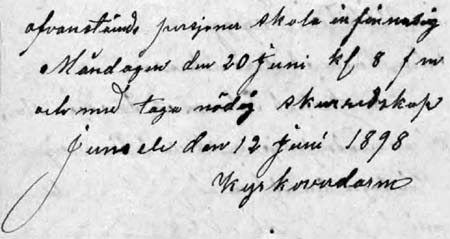 ofvanstånde persjoner skola infinna sig
Måndagen den 20 Juni kl 8 f m
och med taga nödig skurredskap
Junsele den 12 Juni 1898
Kyrkovardarn